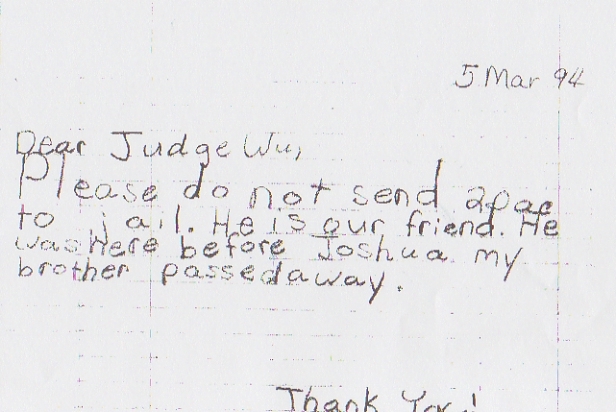 5 Mar 94
Dear Judge Wu,
Please do not send 2pac
to jail. He is our friend. He
was here before Joshua my
brother passed away.
Thank You!